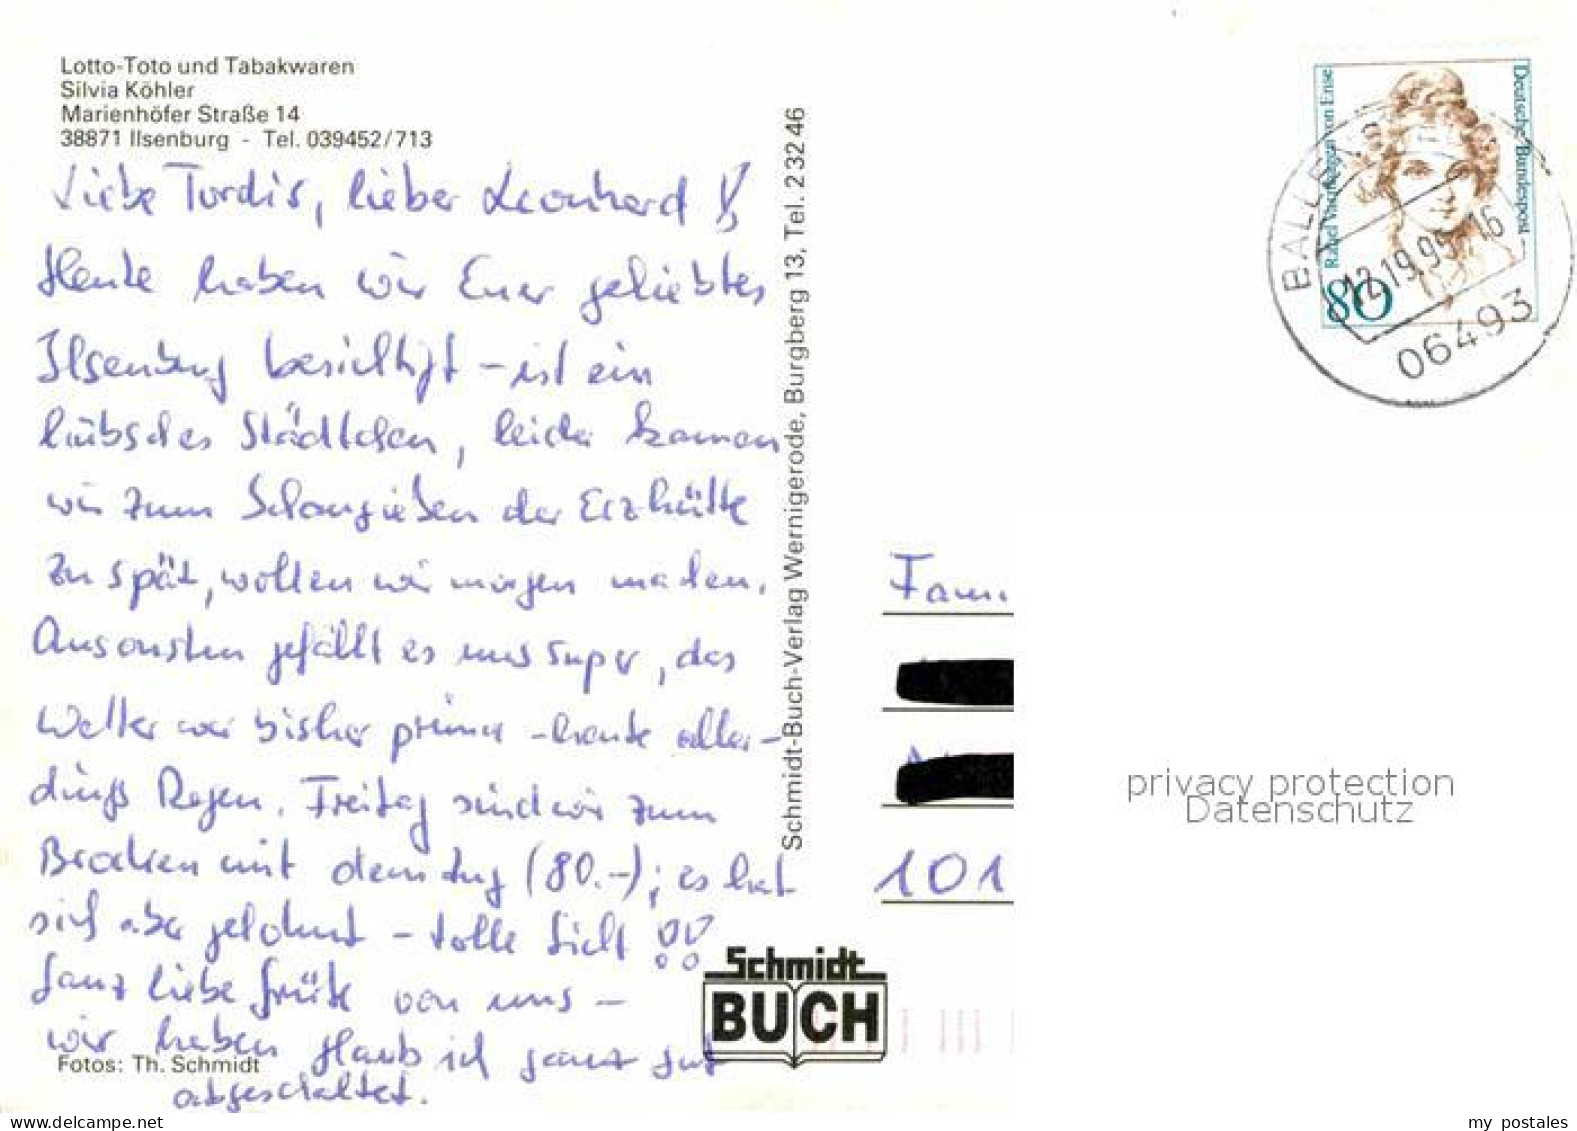 Lotto-Toto und Tabakwaren
Silvia Köhler
Marienhöfer Straße 14
38871 Ilsenburg - Tel. 039452/713
Liebe Tordis, lieber Leonhard!
Heute haben wir Euer geliebtes
Ilsenburg besichtigt - ist ein
hübsches Städtchen, leider kamen
wir zum Schaugießen der Erzhütte
zu spät, wollen wir morgen machen.
Ansonsten gefällt es uns super, das
Wetter war bisher prima - heute aller-
dings Regen. Freitag sind wir zum
Brocken mit dem Zug (80.-); es hat
sich aber gelohnt - tolle Sicht!!
Ganz liebe Grüße von uns -
wir haben glaub ich ganz gut
abgeschaltet.
Fotos: Th. Schmidt
Schmidt-Buch-Verlag Wernigerode, Burgberg 13, Tel. 23246
Schmidt
BUCH
Deutsche Bundespost
Rahel Varnhagen von Ense
80
BALLENS
12.19.95-16
06493
Fam.
101
privacy protection
Datenschutz
delcampe.net
my_postales